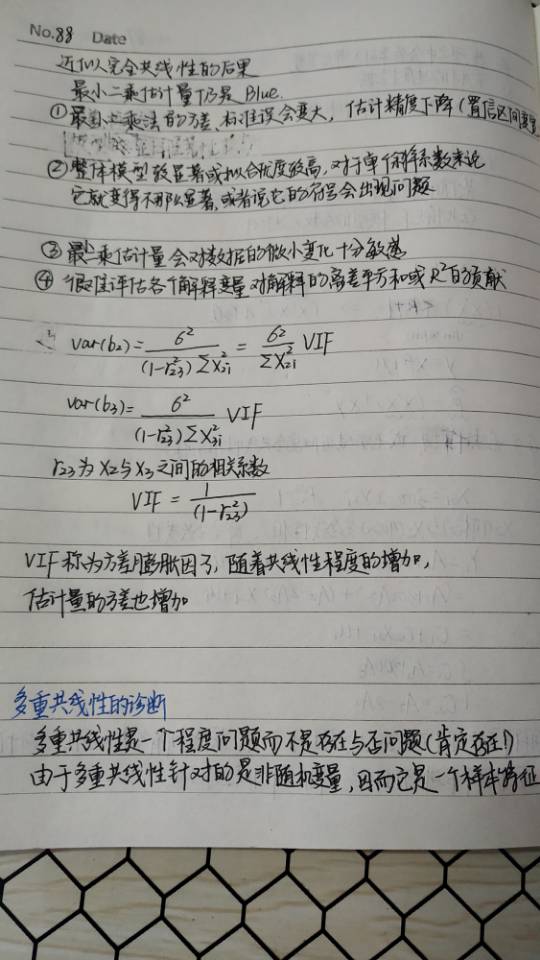 No.88 Date
近似完全共线性的后果
最小二乘估计量仍是Blue.
①最小二乘法的方差、标准误会变大，估计精度下降(置信区间变宽
②整体模型较显著或拟合优度较高，对于单个解释系数来说
它就变得不那么显著，或者说它的符号会出现问题
③最小二乘估计量会对数据的微小变化十分敏感
④很难评估各个解释变量对解释的离差平方和或R²的贡献
var(b₂)= σ²/((1-r₂₃²)∑x₂ᵢ²) = σ²/∑x₂ᵢ² VIF
var(b₃)= σ²/((1-r₂₃²)∑x₃ᵢ²) VIF
r₂₃为X₂与X₃之间的相关系数
VIF = 1/(1-r₂₃²)
VIF称为方差膨胀因子，随着共线性程度的增加，
估计量的方差也增加
多重共线性的诊断
多重共线性是一个程度问题而不是存在与否问题(肯定存在!)
由于多重共线性针对的是非随机变量，因而它是一个样本特征